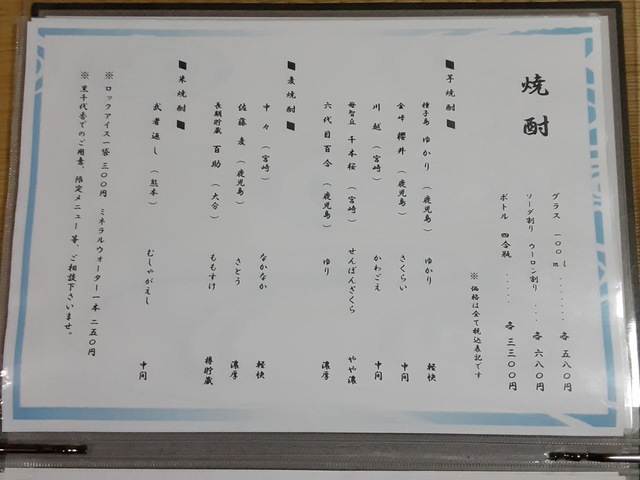 焼酎
グラス 一〇〇ml ........ 各 五八〇円
ソーダ割り ウーロン割り ... 各 六八〇円
ボトル 四合瓶 ..... 各 三三〇〇円
※ 価格は全て税込表記です
■ 芋焼酎 ■
種子島 ゆかり (鹿児島) ゆかり 軽快
金峰 櫻井 (鹿児島) さくらい 中間
川越 (宮崎) かわごえ 中間
母智丘 千本桜 (宮崎) せんぼんざくら やや濃
六代目百合 (鹿児島) ゆり 濃厚
■ 麦焼酎 ■
中々 (宮崎) なかなか 軽快
佐藤 麦 (鹿児島) さとう 濃厚
長期貯蔵 百助 (大分) ももすけ 樽貯蔵
■ 米焼酎 ■
武者返し (熊本) むしゃがえし 中間
※ ロックアイス一袋 三〇〇円 ミネラルウォーター一本 二五〇円
※ 黒千代香でのご用意、限定メニュー等、ご相談下さいませ。